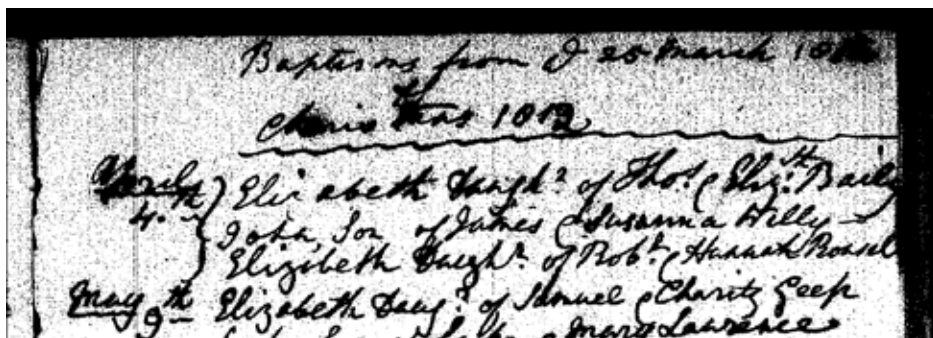 Baptisms from ye 25 March
to
Christmas 1802
April Elizabeth Daughr of Thos. & Eliz.th Baily
4.th John, Son of James & Susanna Willy
Elizibeth Daughr. of Robt. & Hannah
May 9th Elizabeth Daugr. of Samuel & Charity Geep
Mary Lawrence